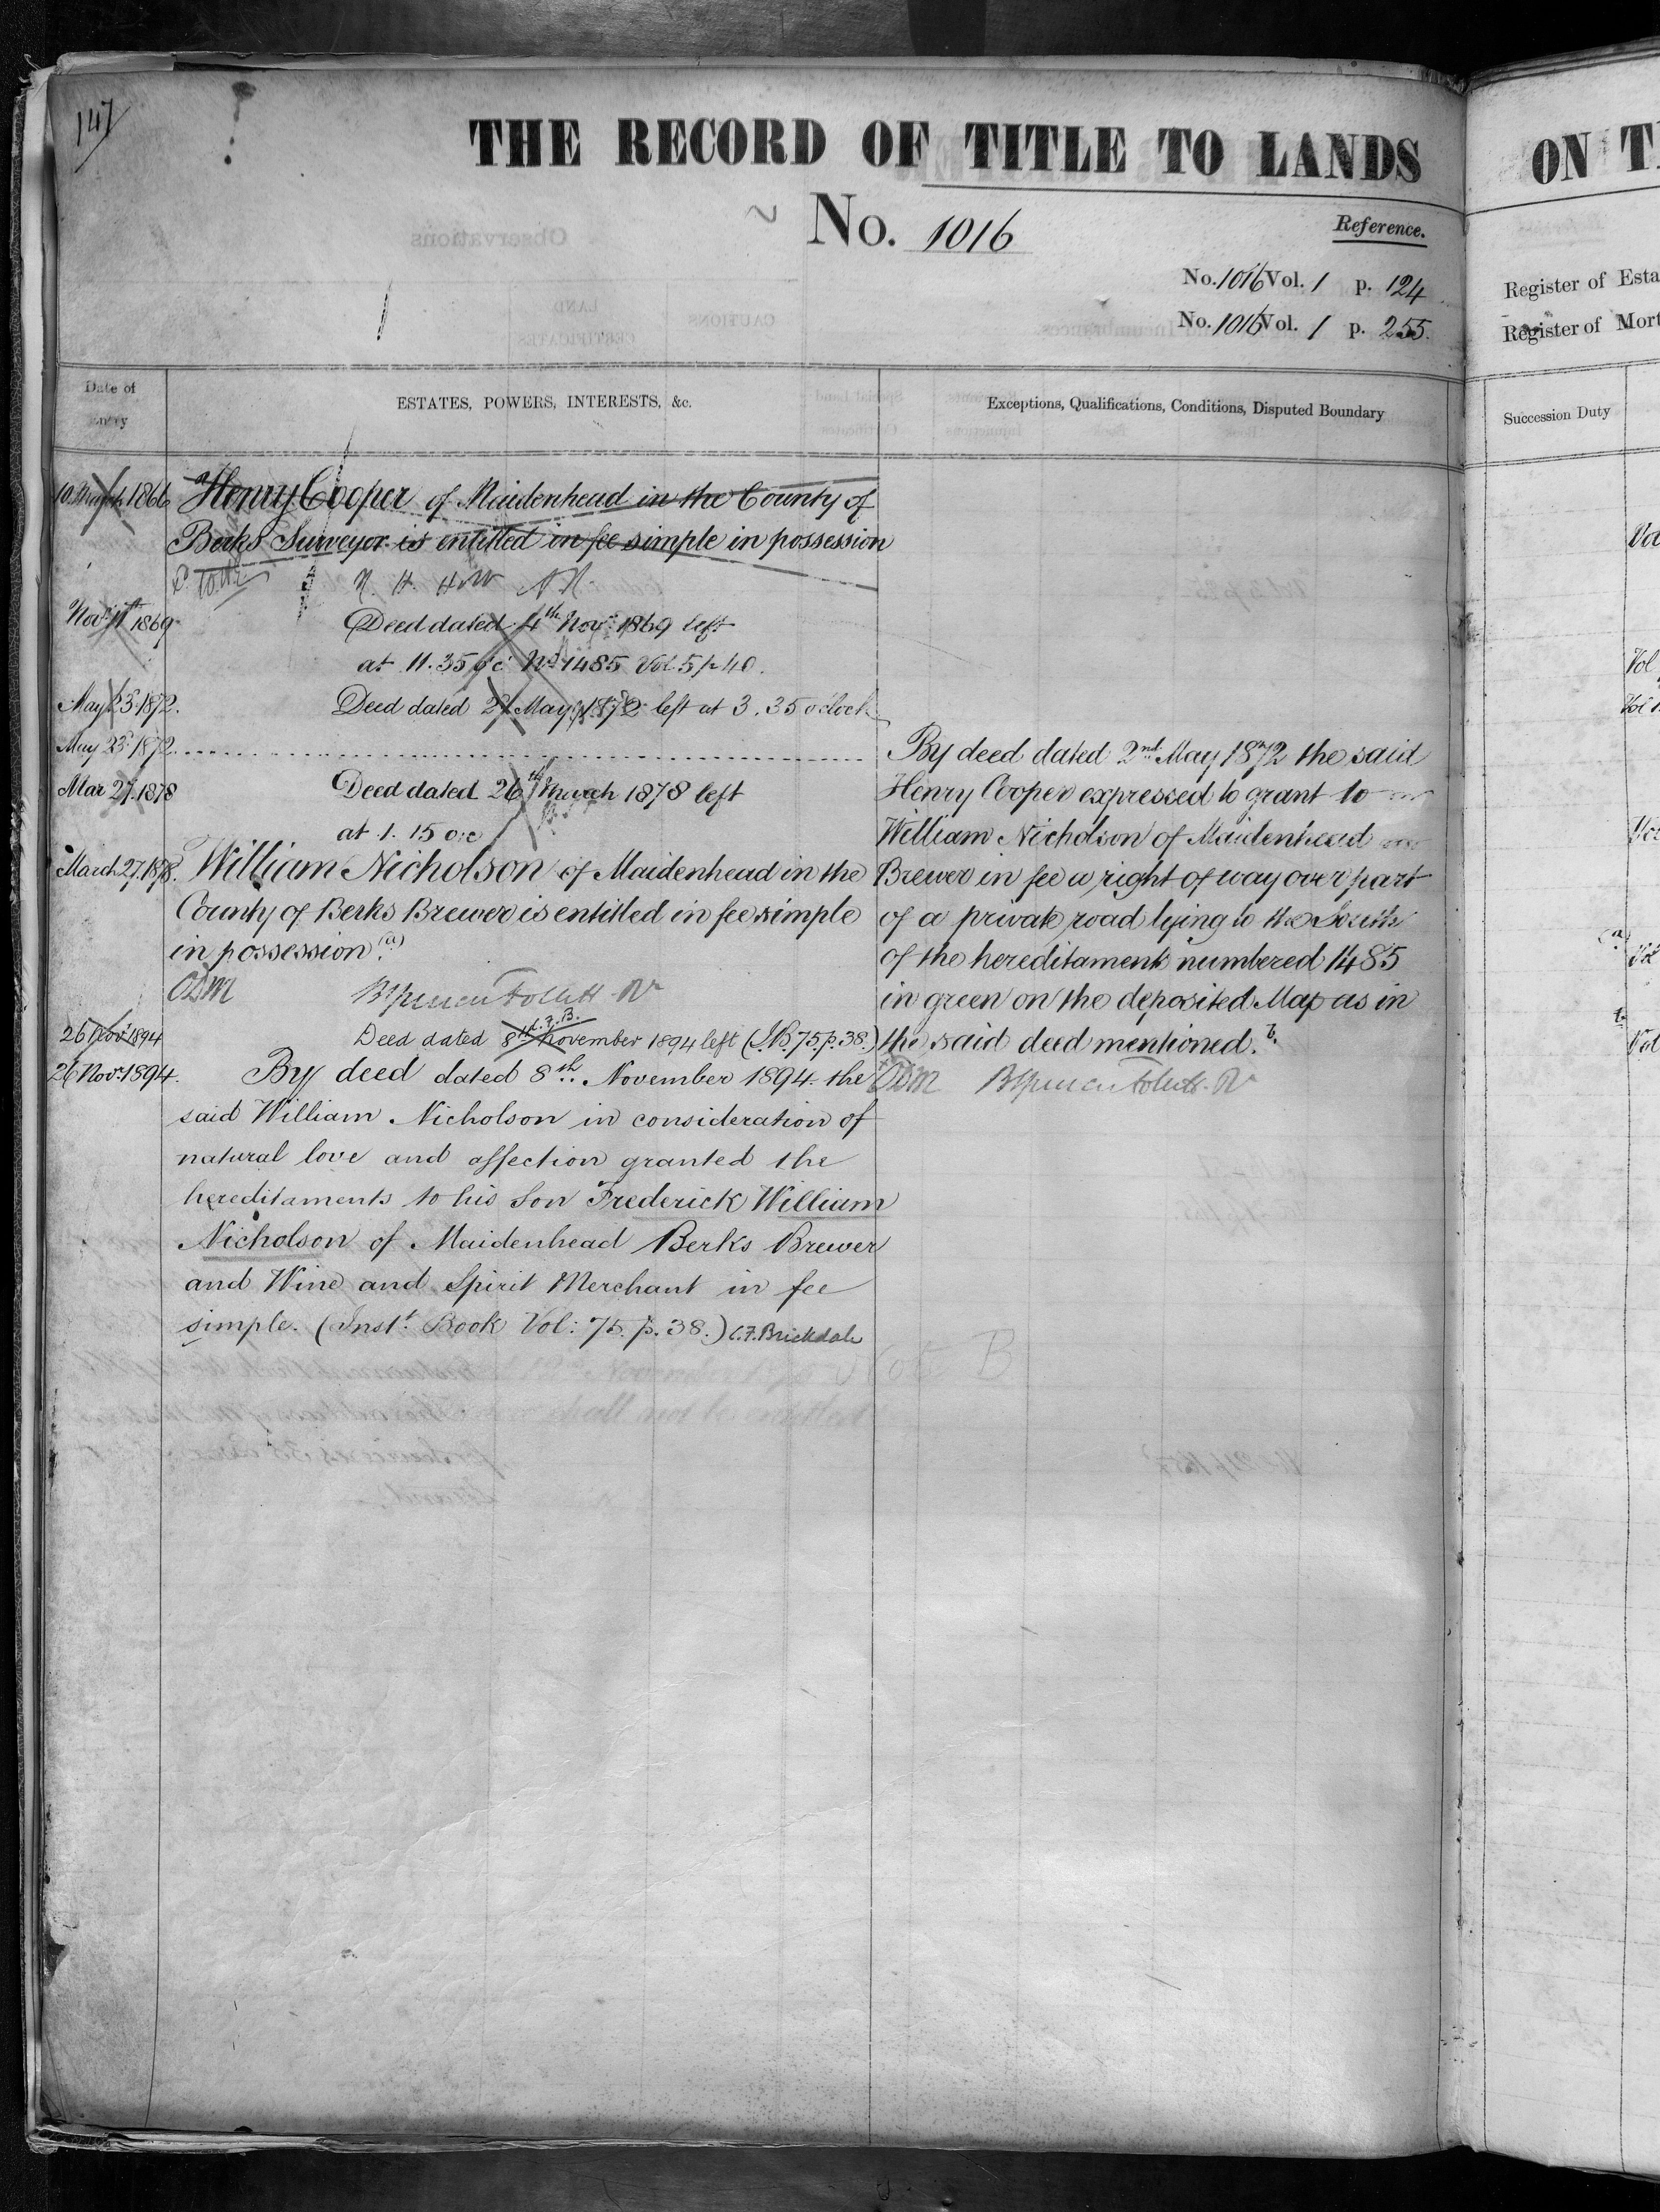 147
THE RECORD OF TITLE TO LANDS
No. 1016
Reference.
No. 1016 Vol. 1 p. 124
No. 1016 Vol. 1 p. 255.
Date of Entry
ESTATES, POWERS, INTERESTS, &c.
Exceptions, Qualifications, Conditions, Disputed Boundary
10. March 1866 Henry Cooper of Maidenhead in the County of
Berks Surveyor is entitled in fee simple in possession
Novr 11th 1869 Deed dated 4th Novr 1869 left
at 11.35 o'c No 1485 Vol 5 p 40.
May 23 1872. Deed dated May 1872 left at 3.35 o'clock
May 23 1872
Mar 27. 1878 Deed dated 26th March 1878 left
at 1.15 o'c
March 27. 1878. William Nicholson of Maidenhead in the
County of Berks Brewer is entitled in fee simple
in possession (a)
ODM
26 Novr 1894 Deed dated 8th November 1894 left (I.B. 75. p. 38.)
C.F.B.
26 Novr 1894. By deed dated 8th November 1894 the
said William Nicholson in consideration of
natural love and affection granted the
hereditaments to his Son Frederick William
Nicholson of Maidenhead Berks Brewer
and Wine and Spirit Merchant in fee
simple. (Inst. Book Vol: 75. p. 38.) C.F. Brickdale
By deed dated 2nd May 1872 the said
Henry Cooper expressed to grant to
William Nicholson of Maidenhead
Brewer in fee a right of way over part
of a private road lying to the South
of the hereditaments numbered 1485
in green on the deposited Map as in
the said deed mentioned. b.
ODM
ON T
Register of Esta
Register of Mort
Succession Duty
Vol
Vol